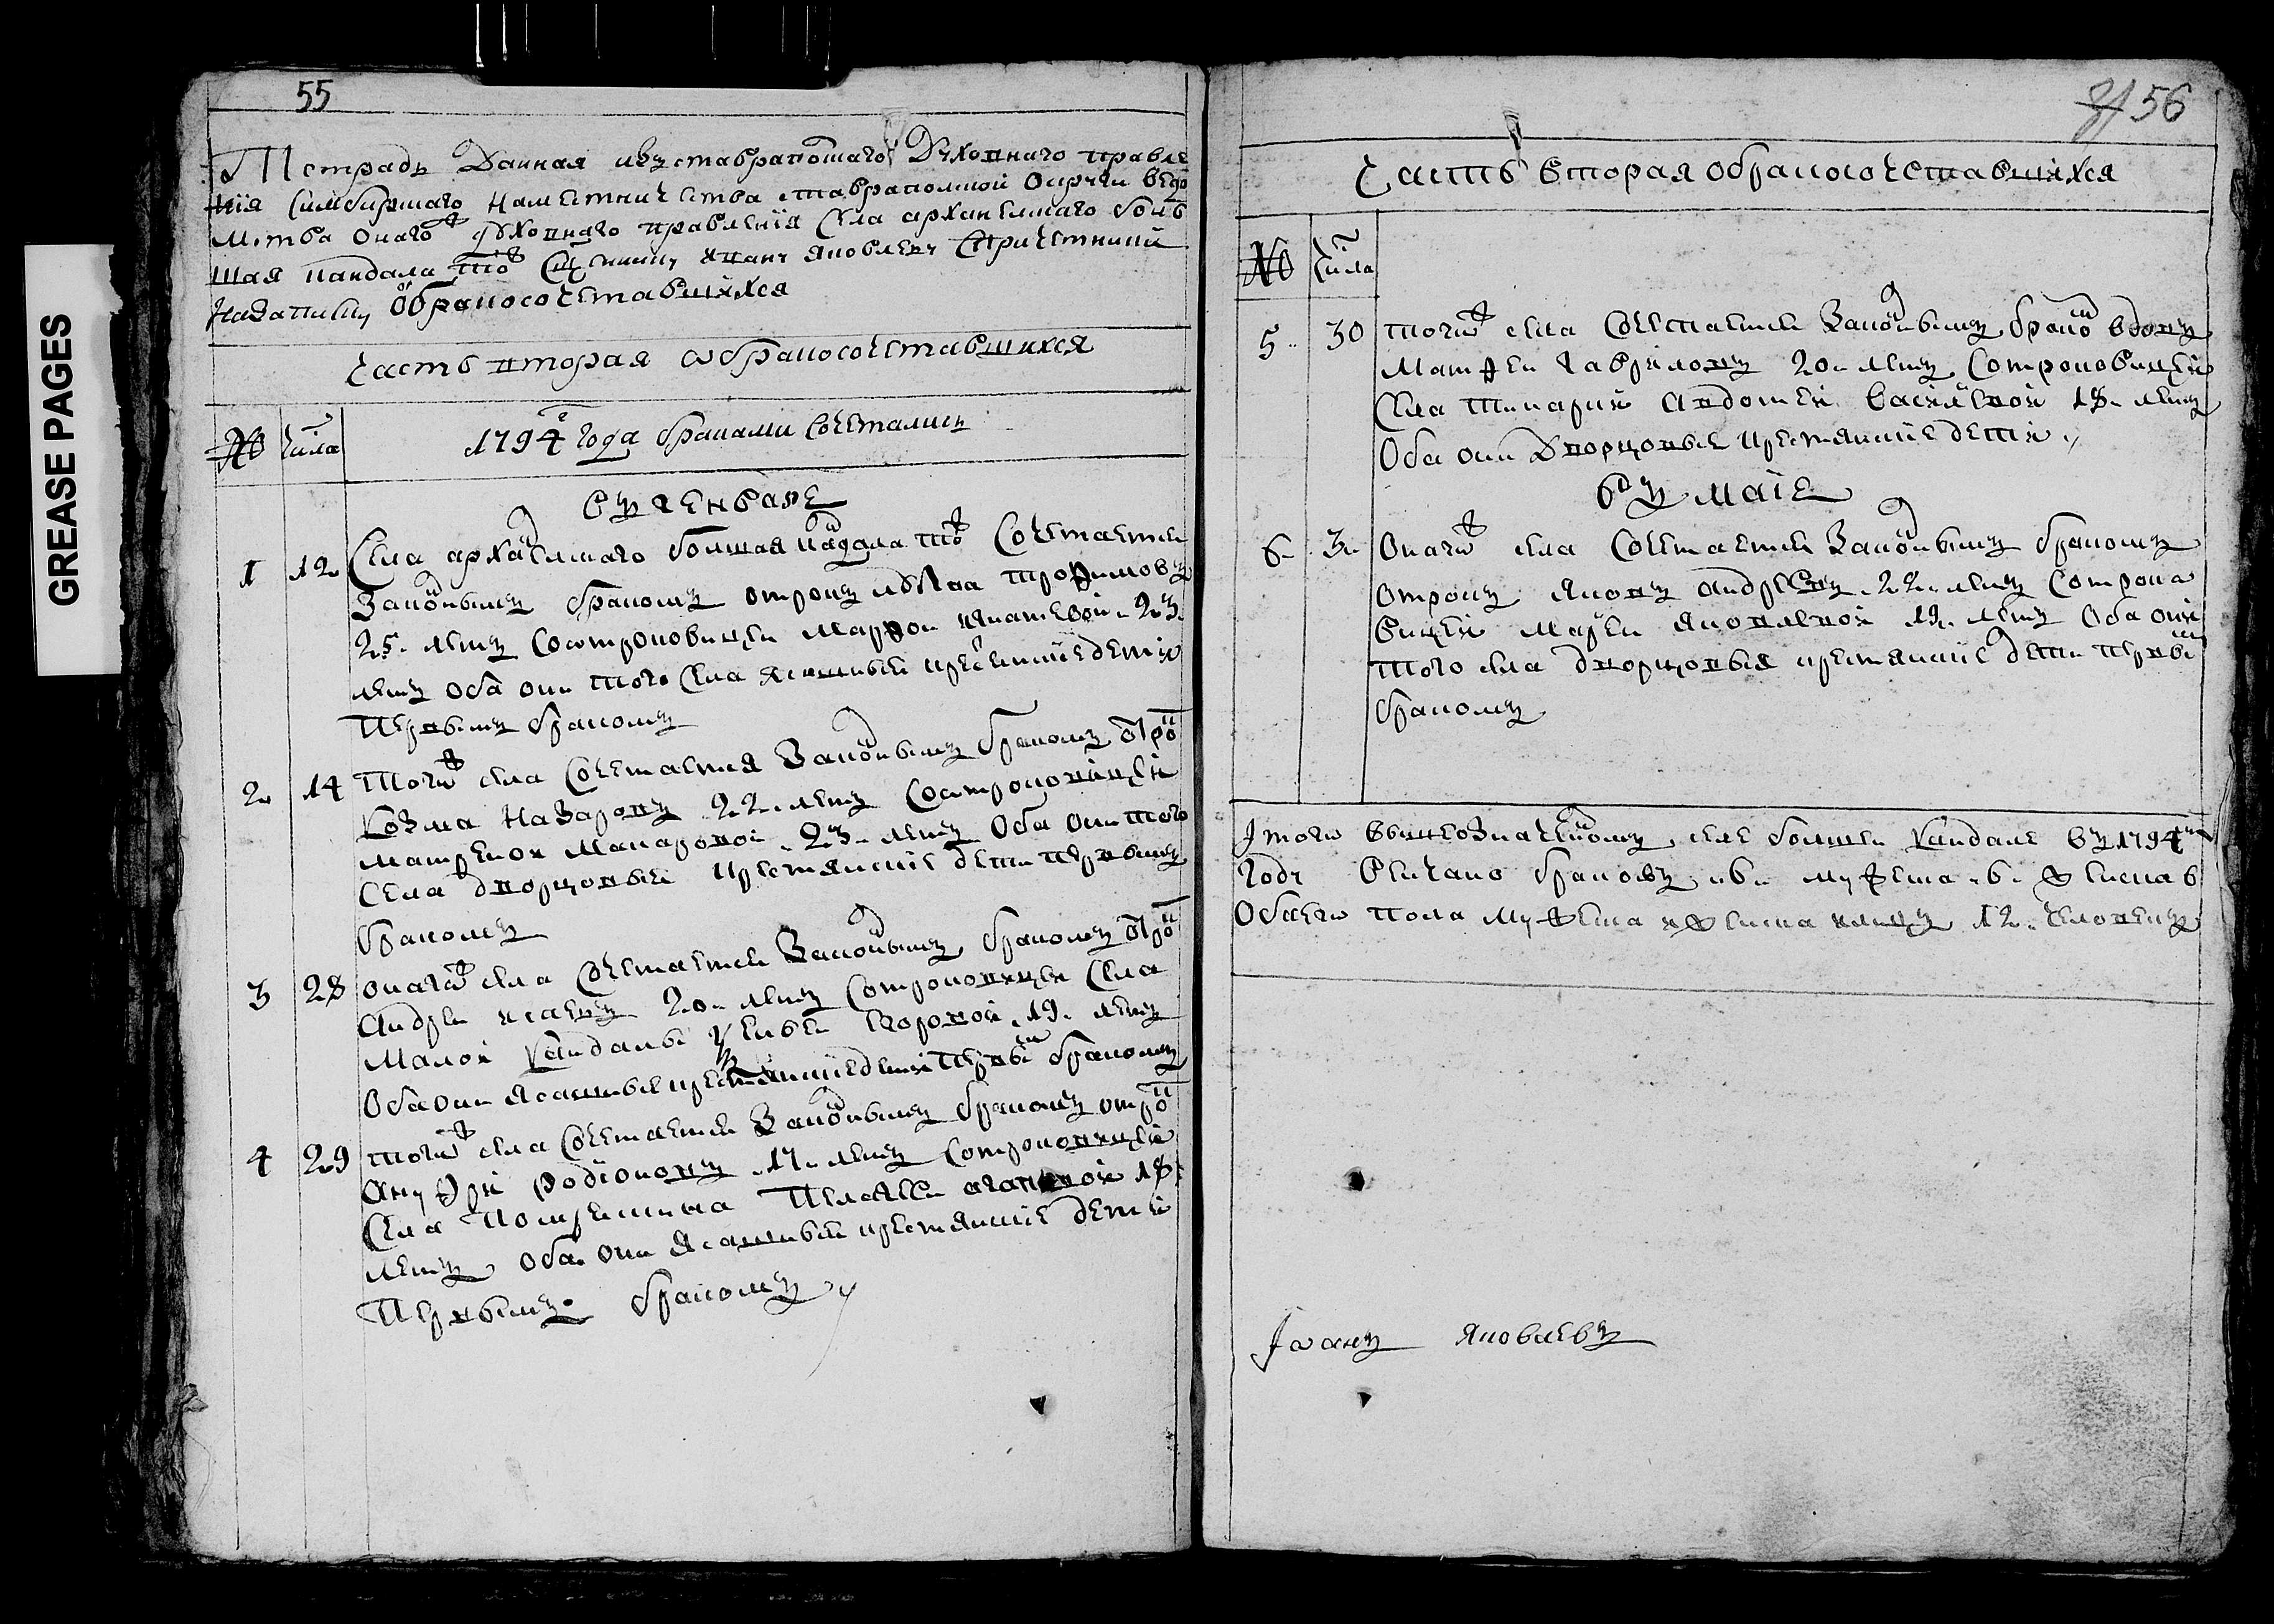 GREASE PAGES
55
Тетрадь Данная изъ ставрапольскаго Духовнаго правле
нія Симбирскаго намѣстничества ставрапольской округи ведо
мства онаго духовнаго правления Села арханелскаго боль
шая кандала тожъ Священнику Ивану Яковлеву Спричетники
Назаписку обракосочетавшихся
Часть вторая о бракосочетавшихся
№ числа 1794 года браками Сочетались
въ генваре
1 12 Села арханелскаго болшая кандала тожъ Сочетаетсе
Законнымъ бракомъ отрокъ трофимовъ
25 летъ Соотроковицеи Марфои 23
летъ оба они того Села ясашныи крестьянские дети
первымъ бракомъ
2 14 тогожъ села Сочетаетися Законнымъ бракомъ отрок
Козма Назаровъ 22 летъ Соотроковицеи
матреной Макаровой 23 летъ Оба они того
Села дворцовыи крестьянские дети первымъ
бракомъ
3 28 онагожъ села Сочетаетсе Законнымъ бракомъ отрок
Андреи исаевъ 20 летъ Сотроковицеи Села
Малои Кандалы Егоровои 19 летъ
Оба они Ясашные крестьянские дети первымъ бракомъ
4 29 тогожъ села Сочетаетсе Законнымъ бракомъ отрок
Ануфри родионовъ 17 летъ Сотроковицеи
Села Пелагеи 18
летъ Оба они Ясашныи крестьянские дети
Первымъ бракомъ
56
Часть вторая обракосочетавшихся
№ числа
5 30 тогожъ села Сочетаетсе Законнымъ браком вдовъ
Матфеи гавриловъ 20 летъ Сотроковицеи
Села Авдотеи Васильвои 18 летъ
Оба они Дворцовые крестьянские дети
въ маіе
6 3 Онагожъ села Сочетаетсе Законнымъ бракомъ
отрокъ Яковъ андреевъ 22 летъ Сотрока
вицеи Марьеи Яковлевои 19 летъ Оба они
того села дворцовыя крестьянские дети первым
бракомъ
Итого ввышеозначенномъ селе болшеи Кандале въ 1794м
годе Венчано браковъ 6 мужеска 6 женска 6
Обаего пола мужеска и женска 12 человекъ
Іоанъ Яковлевъ